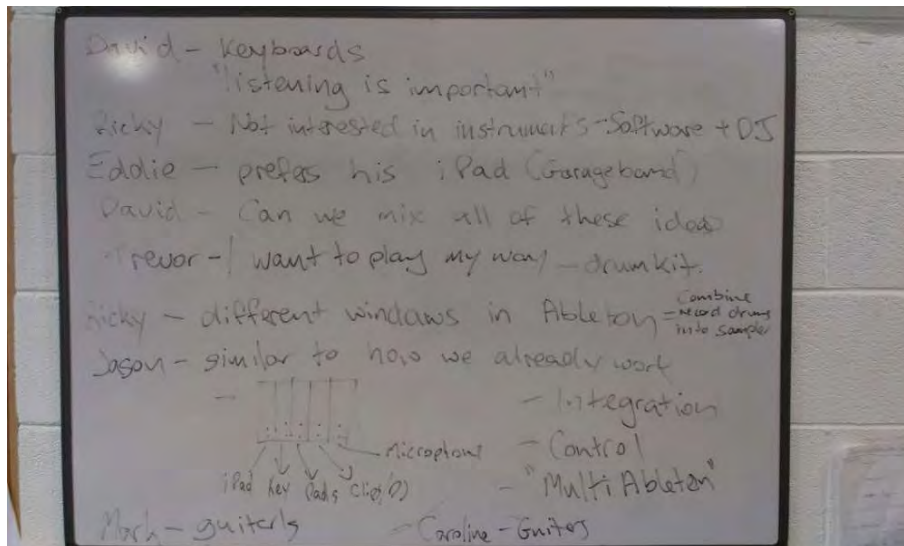 David - Keyboards
"listening is important"
Ricky - Not interested in instruments - Software + DJ
Eddie - prefers his iPad (Garageband)
David - Can we mix all of these ideas
Trevor - I want to play my way - drumkit.
Ricky - different windows in Ableton = Combine
record drums
into sampler
Jason - similar to how we already work
- Integration
- Microphone
- Control
iPad Key Pads
- "Multi Ableton"
Mark - guitars
- Caroline - Guitars